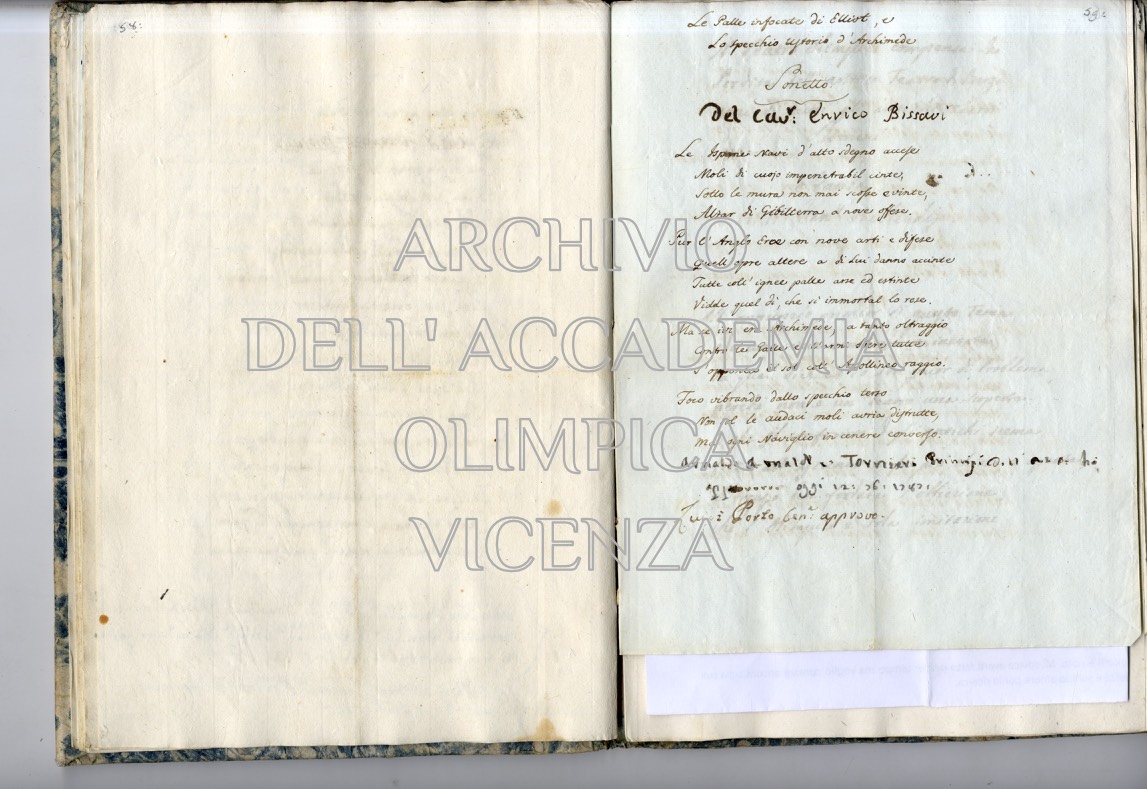 58:
59:
Le Palle infocate di Elliot, e
Lo specchio Ustorio d'Archimede
Sonetto.
Del Cav.r: Enrico Bissari
Le Ispane Navi d'alto sdegno accese
Moli di cuojo impenetrabil cinte,
Sotto le mura non mai scosse e vinte,
Alzar di Gibilterra a nove offese.
Pur l'Anglo Eroe con nove arti e difese
Quell'opre altere a di Lui danno accinte
Tutte coll'ignee palle arse ed estinte
Vidde quel dì, che si immortal lo rese.
Ma se ivi era Archimede, a tanto oltraggio
Contro le Galle e l'armi Ibere tutte
S'opponea il sol coll'Apollineo raggio.
Foco vibrando dallo specchio terso
Non sol le audaci moli avria distrutte,
Ma ogni Naviglio in cenere converso.
Arnaldo Arnald. Tornieri Principe
oggi
Luigi Porto Cen.r approvo.
ARCHIVIO
DELL' ACCADEMIA
OLIMPICA
VICENZA